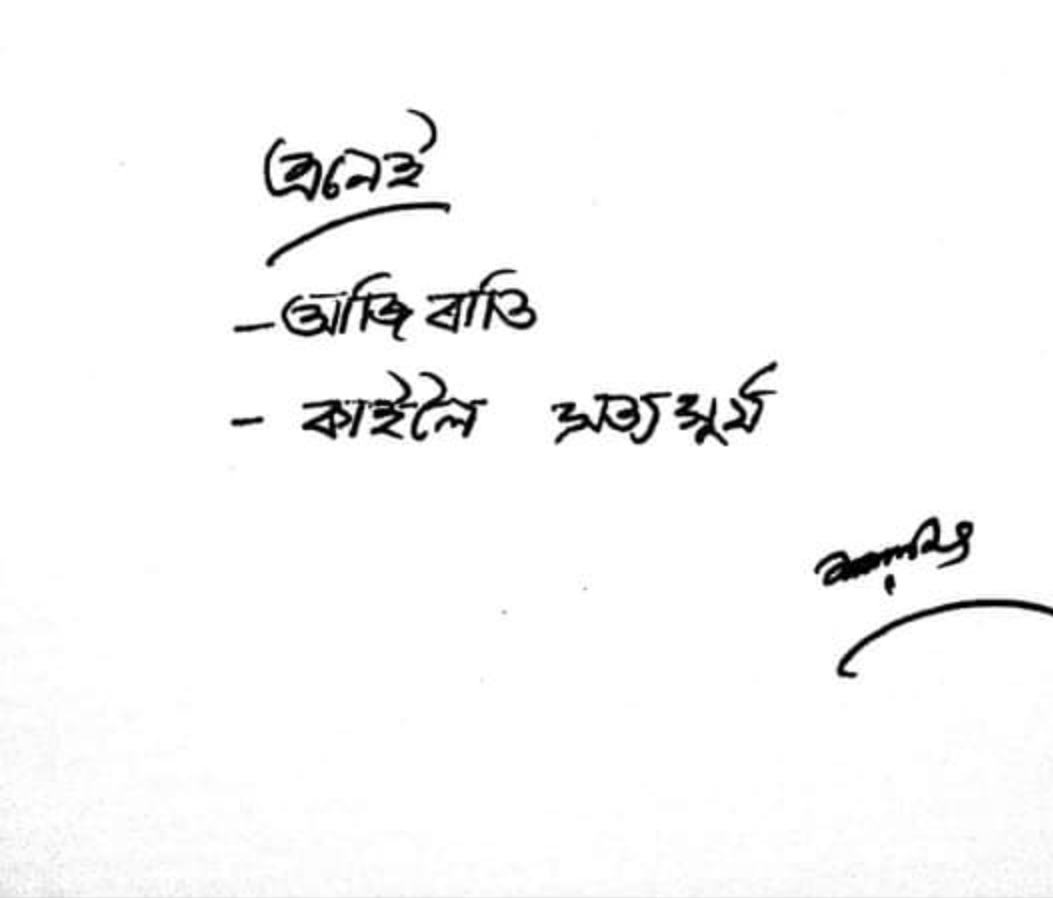 এনেই
– আজি ৰাতি
– কাইলৈ সত্যসূৰ্য